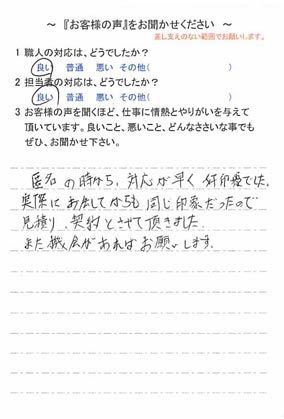 ～ 『お客様の声』をお聞かせください ～
差し支えのない範囲でお願いします。
1 職人の対応は、どうでしたか？
良い 普通 悪い その他( )
2 担当者の対応は、どうでしたか？
良い 普通 悪い その他( )
3 お客様の声を聞くほど、仕事に情熱とやりがいを与えて
頂いています。良いこと、悪いこと、どんなささいな事でも
ぜひ、お聞かせ下さい。
匿名の時から、対応が早く 好印象でした。
実際にお会してからも 同じ印象だったので
見積り、契約とさせて頂きました。
また機会があればお願いします。